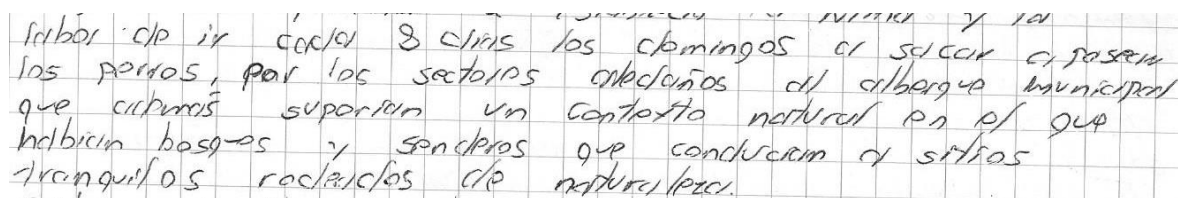 labor de ir cada 8 dias los domingos a sacar a pasear
los perros, por los sectores aledaños al albergue municipal
que ademas suponian un contexto natural en el que
habian bosques y senderos que conducian a sitios
tranquilos rodeados de naturaleza.